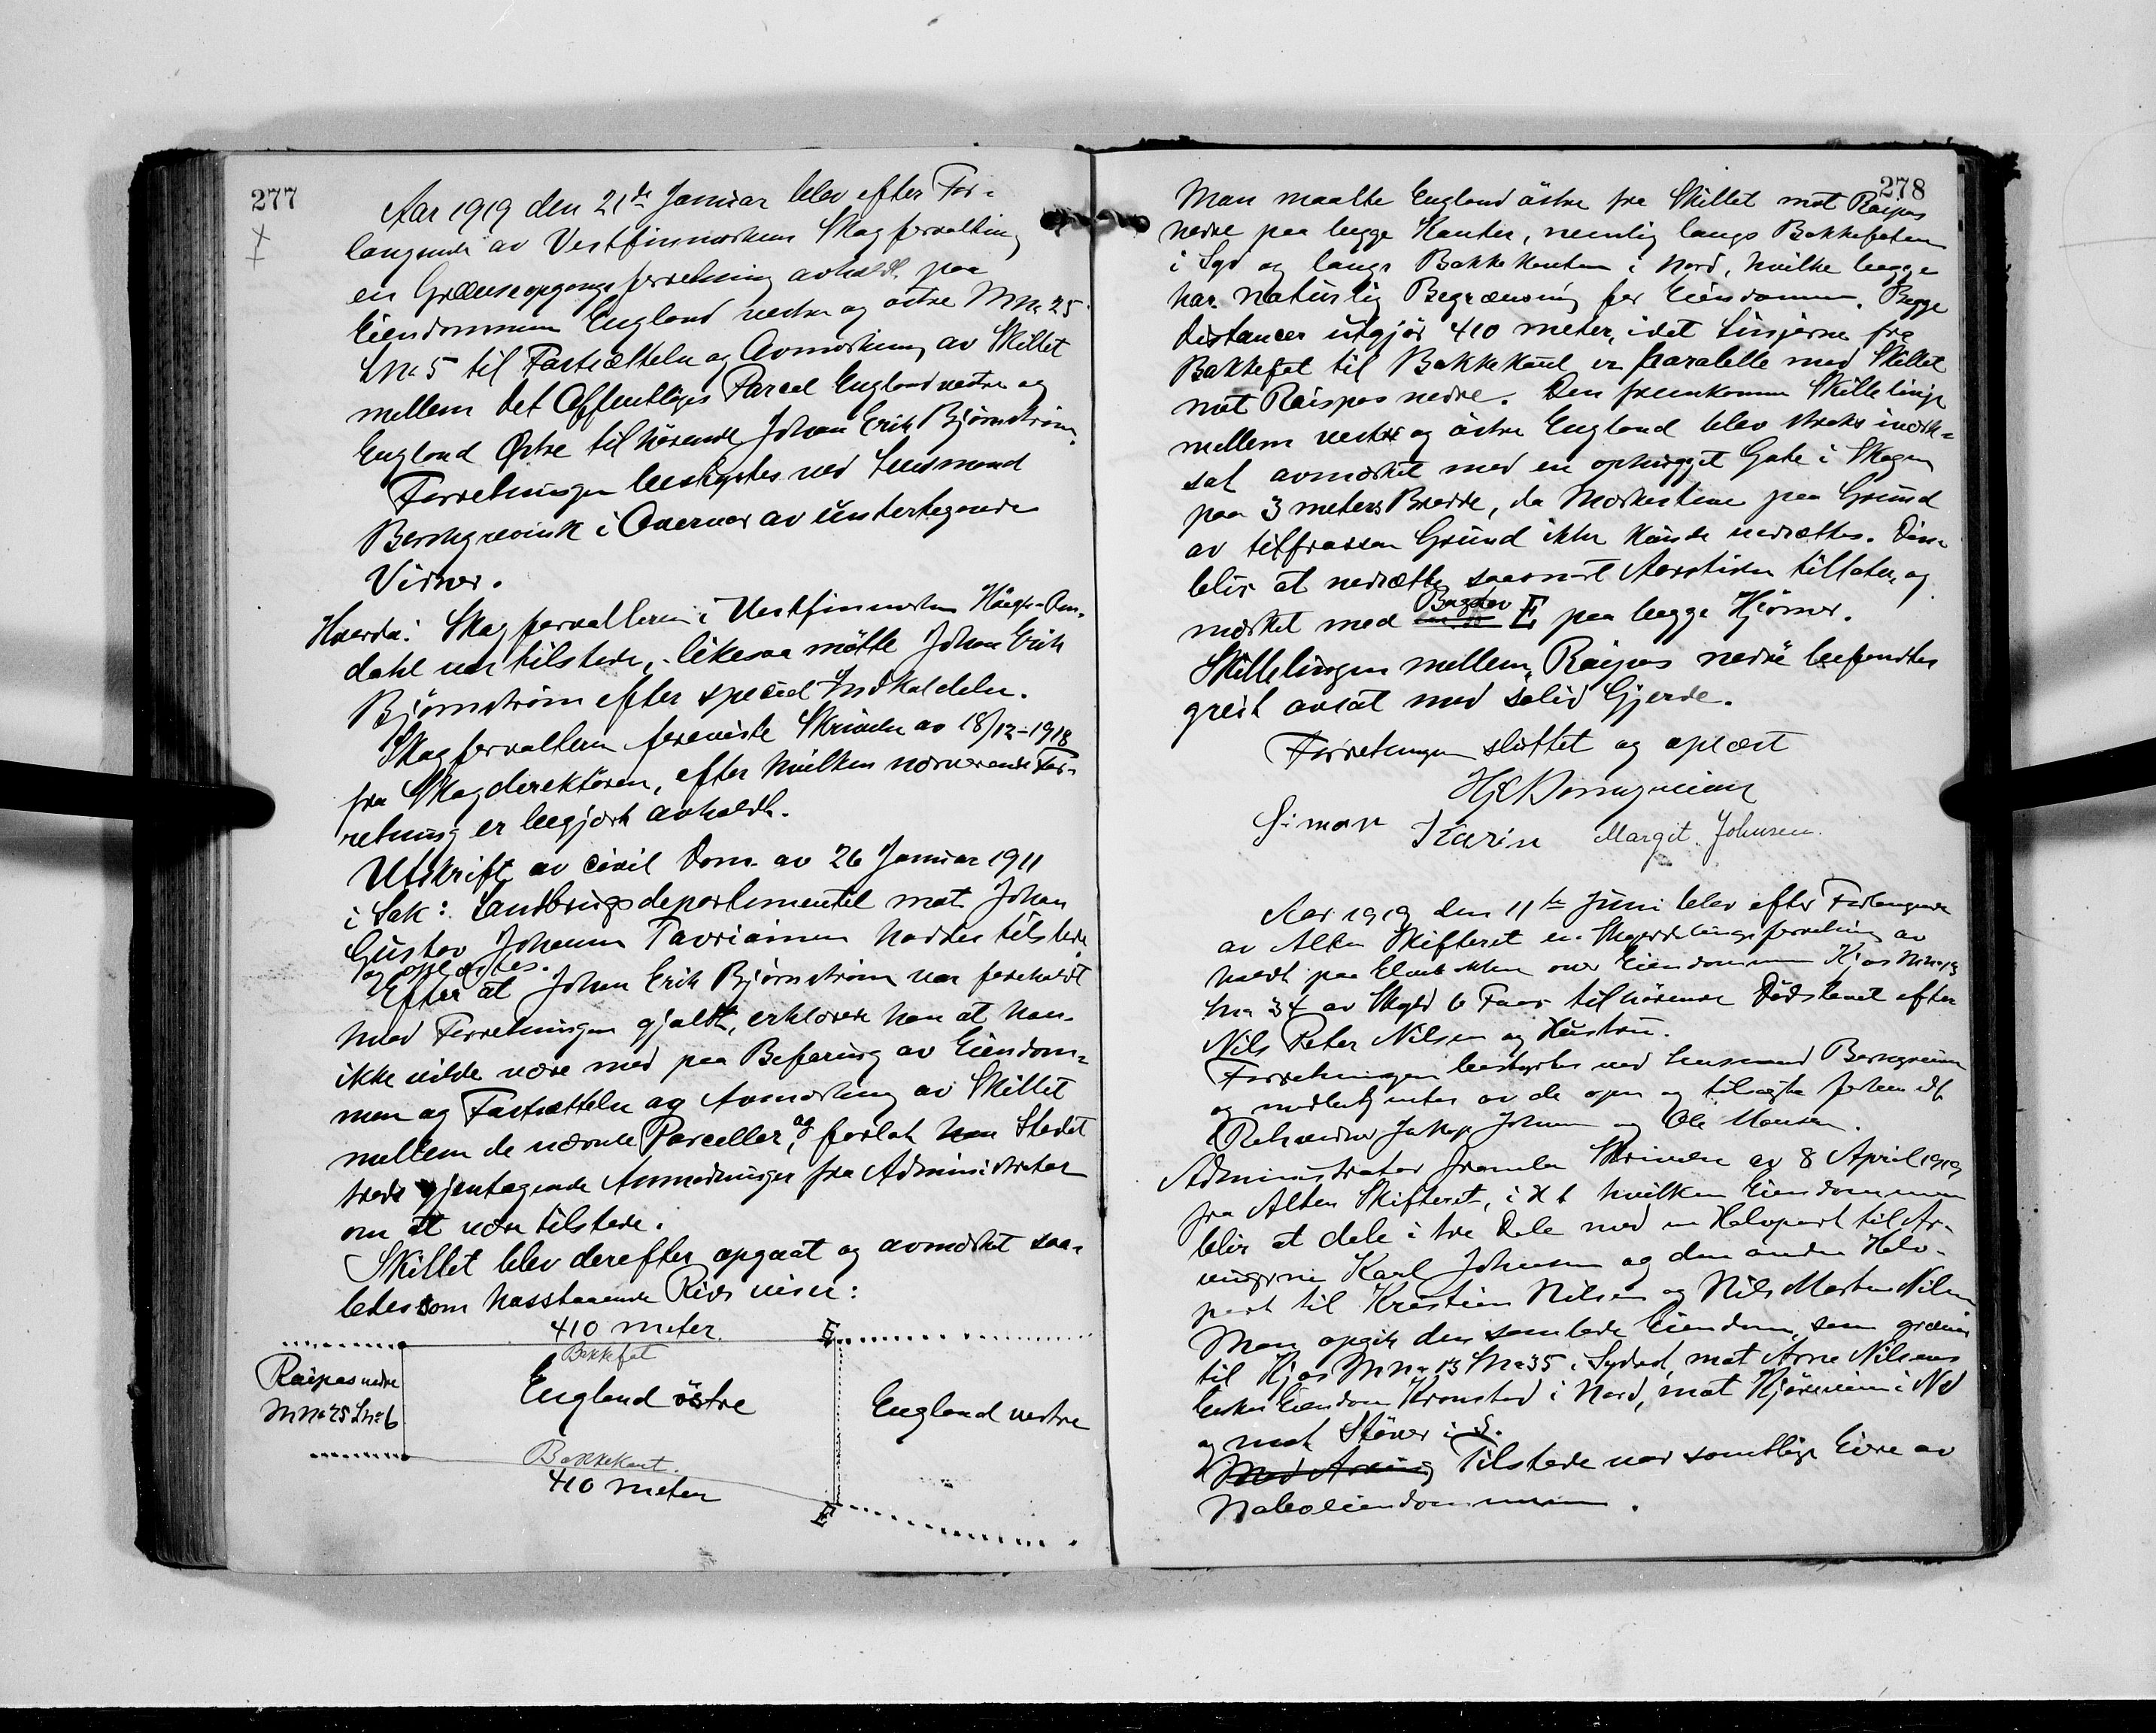 277
Aar 1919 den 21de Januar blev efter For-
langende av Vestfinmarkens Skogforvaltning
en Grænseopgangsforretning avholdt paa
Eiendommen England vestre og østre MNo 25
LNo 5 til Fastsættelse og Avmerkning av Skillet
mellem det Offentliges Parcel England vestre og
England Østre tilhørende Johan Erik Bjørnstrøm.
Forretningen bestyrtes ved Lensmand
av undertegnede
Vidner.
Hvorda: Skogforvalteren i Vestfinmarken
dahl var tilstede, likesaa møtte Johan Erik
Bjørnstrøm efter speciel Indkaldelse.
Skogforvalteren foreviste Skrivelse av 18/12-1918
fra Skogdirektøren, efter hvilken nærværende For-
retning er begjært avholdt.
Utskrift av civil Dom av 26 Januar 1911
i Sak: Landbrugsdepartementet mot Johan
Gustav Johansen Tavriainen haddes tilstede
og oplæstes.
Efter at Johan Erik Bjørnstrøm var foreholdt
hvad Forretningen gjaldt, erklærede han at han
ikke vilde være med paa Befaring av Eiendom-
men og Fastsættelse og Avmerkning av Skillet
mellem de nævnte Parceller, og forlot Stedet
trods gjentagende Anmodninger fra Administrator
om at være tilstede.
Skillet blev derefter opgaat og avmerket saa-
ledes som hosstaaende Rids viser:
410 meter
Bakkefot
Raipas nedre
MNo 25 LNo 6
England östre
England vestre
Bakkekant.
410 meter
E
E
278
Man maalte England östre fra Skillet mot Raipas
nedre paa begge Kanter, nemlig langs Bakkefoten
i Syd og langs Bakkekanten i Nord, hvilke begge
har naturlig Begrænsning for Eiendommen. Begge
Distancer utgjør 410 meter, idet Linjerne fra
Bakkefot til Bakkekant er paralelle med Skillet
mot Raipas nedre. Den fremkomne Skillelinje
mellem vestre og östre England blev straks
sat avmerket med en ophugget Gate i Skogen
paa 3 meters Bredde, da Merkestene paa Grund
av tilfrossen Grund ikke kunde nedsættes. Disse
blir at nedsætte saasnart Aarstiden tillater, og
merket med Bogstav E paa begge Hjørner.
Skillelinjen mellem "Raipas nedre" befandtes
greit avsat med solid Gjerde.
Forretningen sluttet og oplæst
Simon Karin Margit Johnsen.
Aar 1919 den 11te Juni blev efter Forlangende
av Alten Skifteret en Skylddelingsforretning av
holdt paa Elvebakken over Eiendommen Kjos MNo 13
LNo 34 av Skyld 6 tilhørende Dødsboet efter
Nils Peter Nilsen og Hustru.
Forretningen bestyrtes ved Lensmand
og av de opn og
Johnsen og Ole Monsen.
Administrator fremla Skrivelse av 8 April 1919
fra Alten Skifteret, i H t hvilken Eiendommen
blir at dele i tre Dele med en Halvpart til Ar-
vingerne Karl Johnsen og den anden Halv-
part til Kristian Nilsen og Nils Morten Nilsen
Man opgik den samlede Eiendom, som grænser
til Kjos MNo 13 LNo 35 i Sydvest, mot Arne Nilsens
Eiendom Kronstad i Nord, mot i Nd
og mot i S.
Tilstede var samtlige Eiere av
Naboeiendommene.